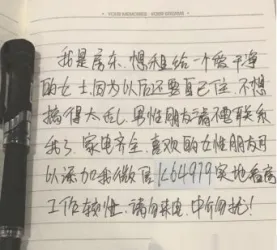 我是房东,想租给一个爱干净
的女士,因为以后还要自己住,不想
搞得太乱,男性朋友请不要联系
我了,家电齐全,喜欢的女性朋友可
以添加我微信k64979实地看房
工作较忙,请勿来电,中介勿扰!